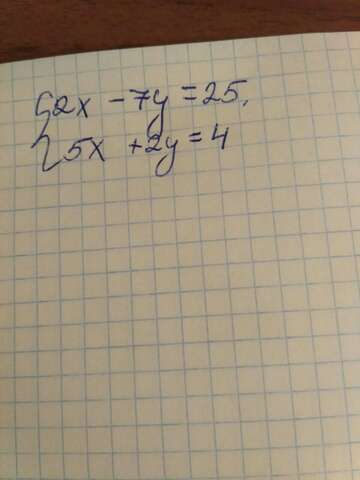 {2x - 7y = 25,
5x + 2y = 4